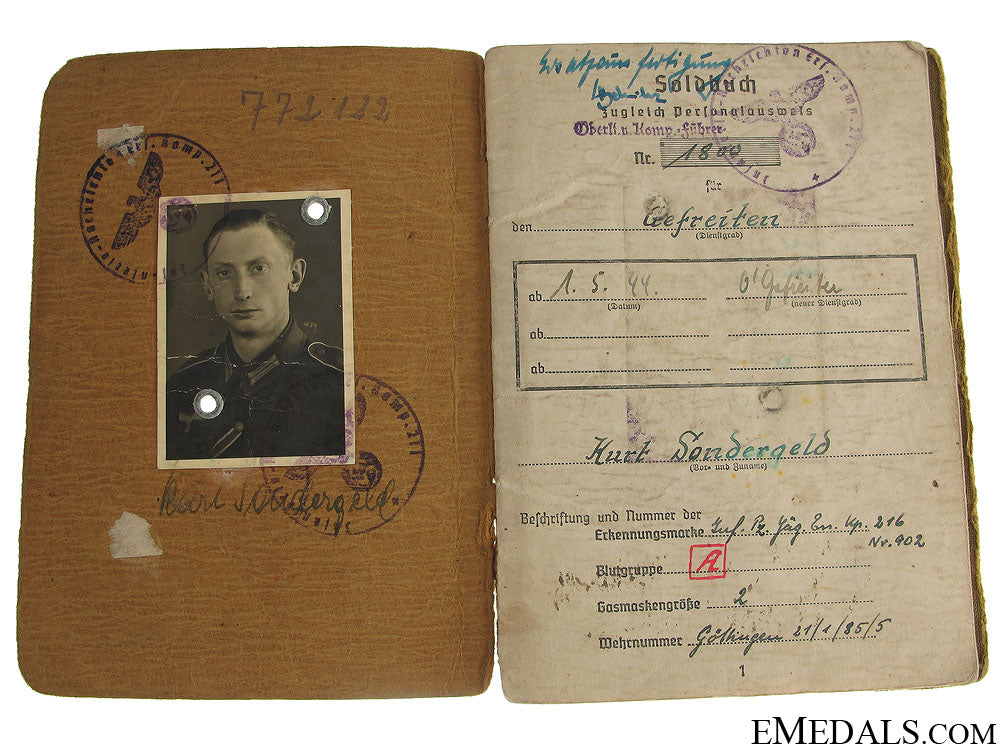 772122
Infanterie-Nachrichten Ers. Komp. 211
Kurt Sondergeld
Komp. 211
Ersatzausfertigung
Soldbuch
zugleich Personalausweis
Oberlt. u. Komp.-Führer
Nr. 1800
für
den Gefreiten
(Dienstgrad)
ab 1. 5. 44. O'Gefreiter
(Datum) (neuer Dienstgrad)
ab
ab
Kurt Sondergeld
(Vor- und Zuname)
Beschriftung und Nummer der
Erkennungsmarke Inf. Pz. Jäg. Ers. Kp. 216
Nr. 902
Blutgruppe A
Gasmaskengröße 2
Wehrnummer Göttingen 21/1/85/5
1
EMEDALS.COM